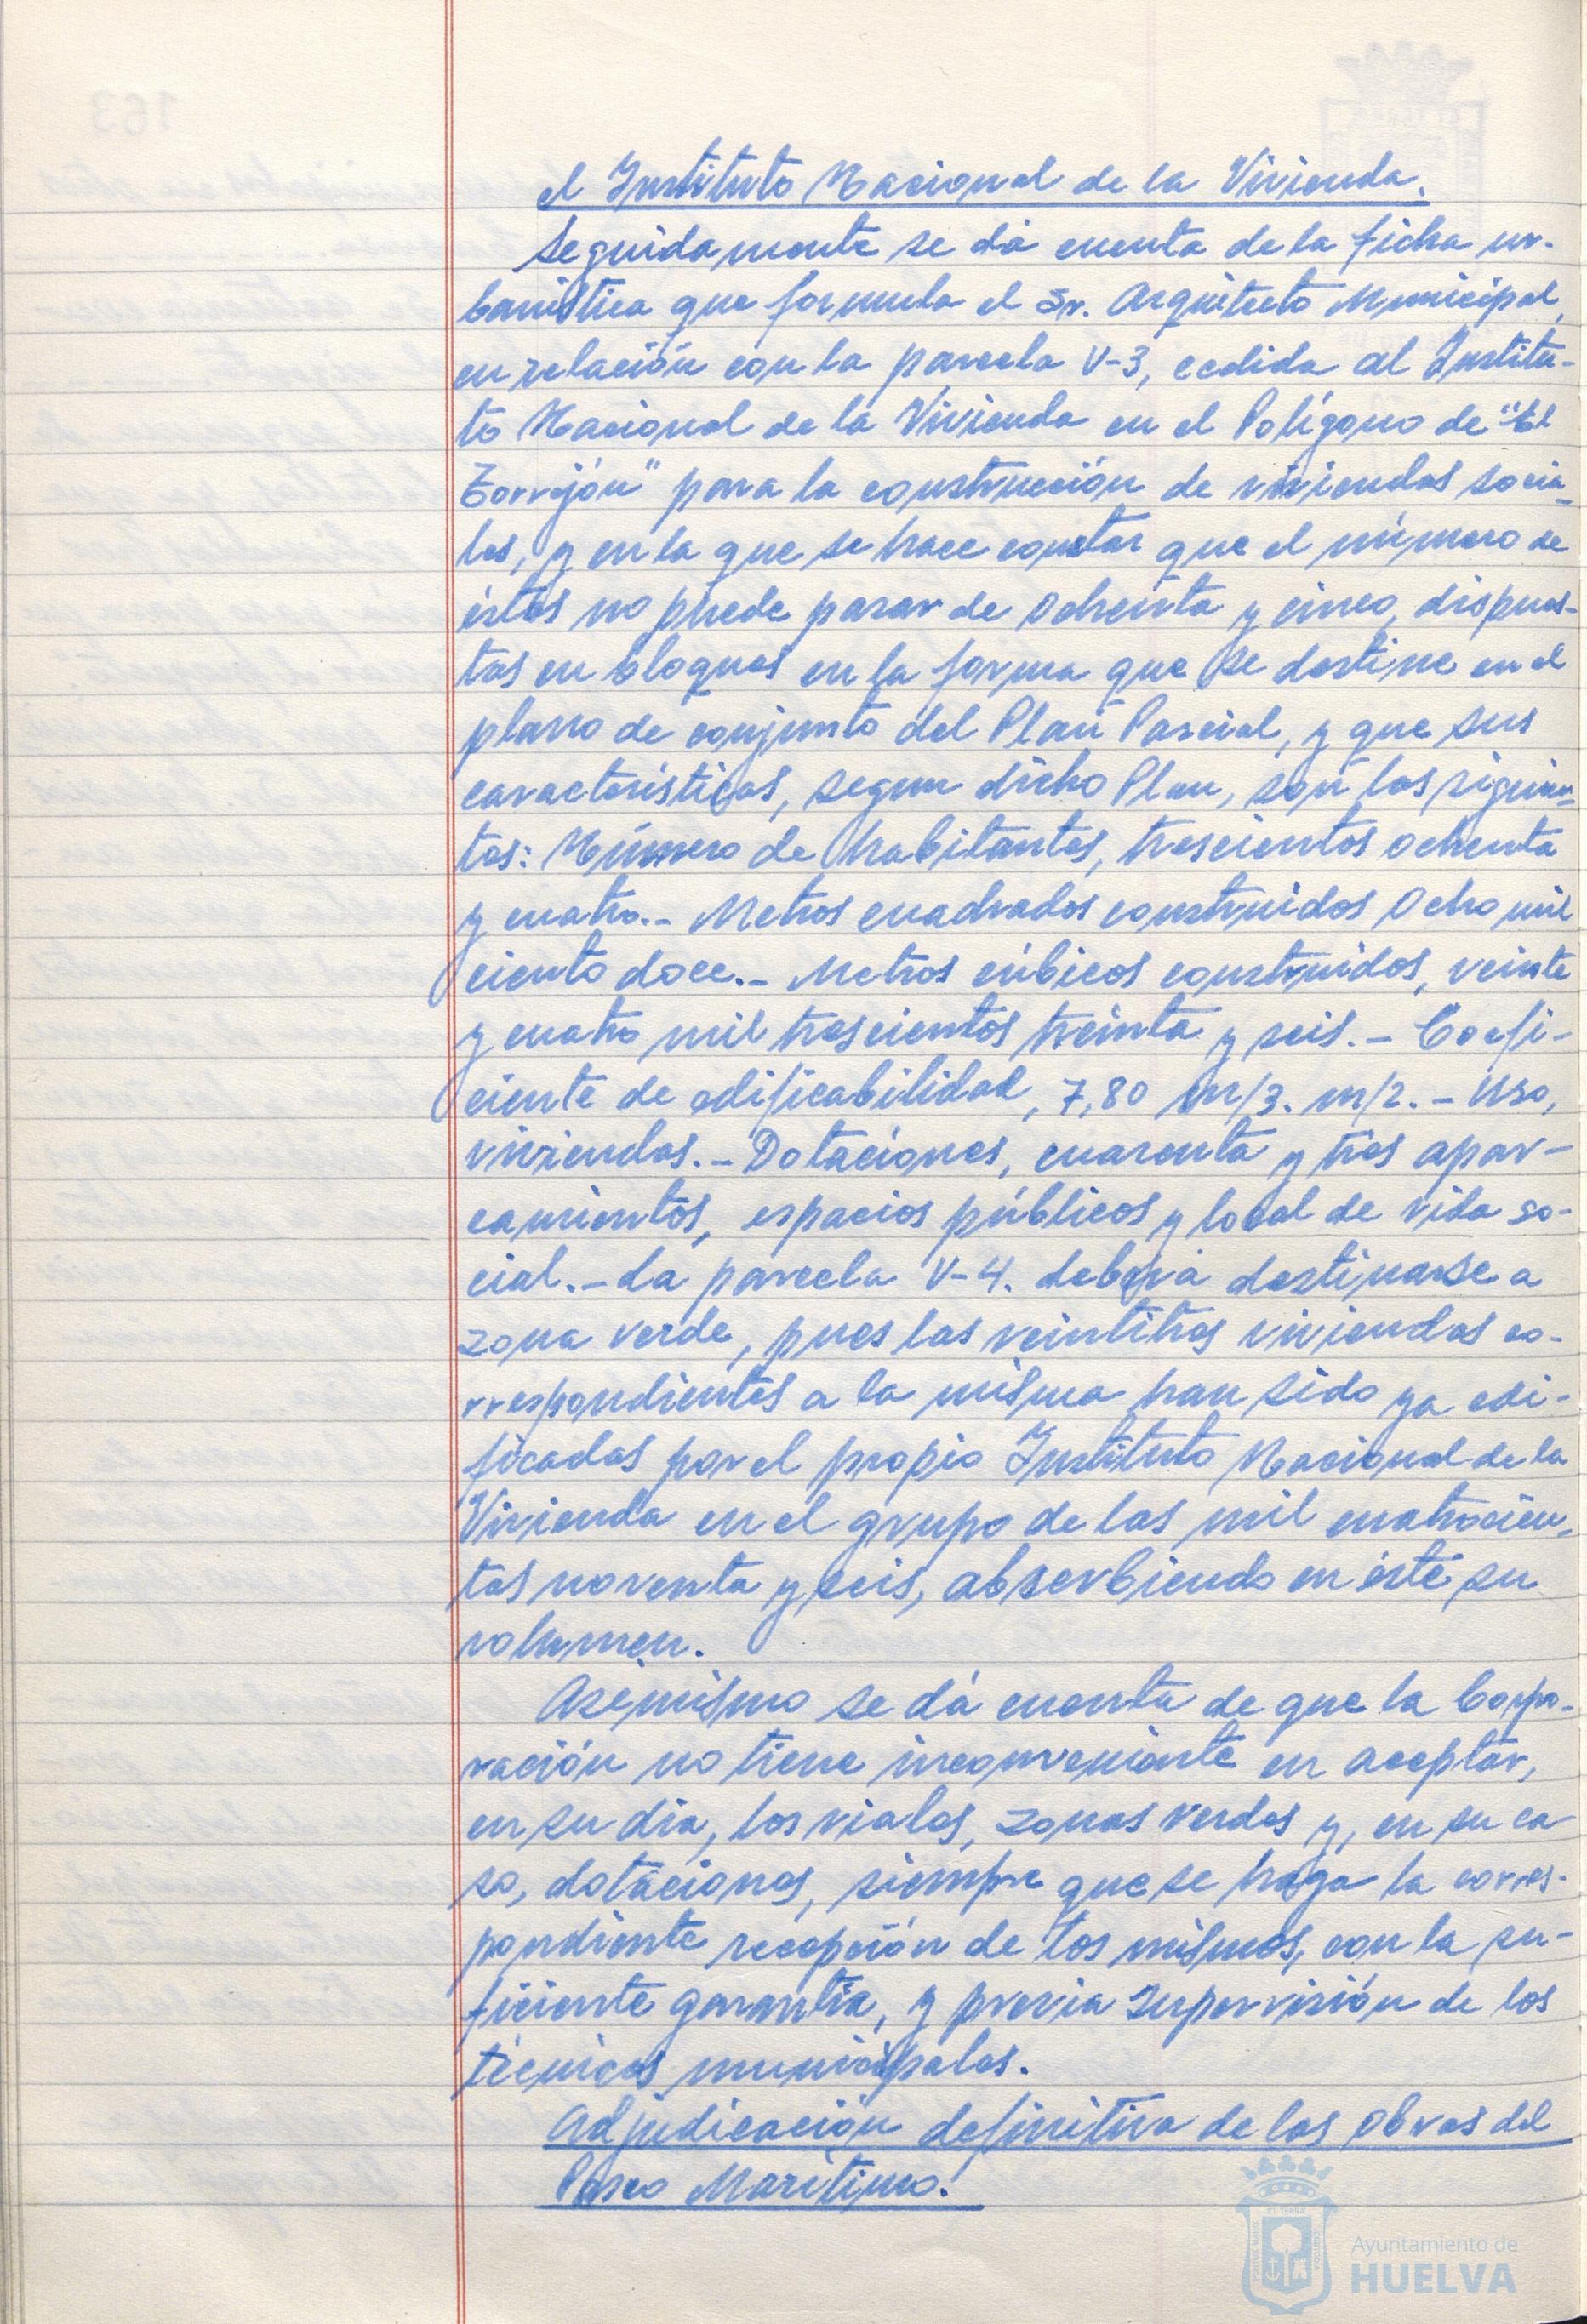 el Instituto Nacional de la Vivienda.
Seguidamente se dá cuenta de la ficha ur-
banística que formula el Sr. Arquitecto Municipal,
en relación con la parcela V-3, cedida al Institu-
to Nacional de la Vivienda en el Polígono de "El
Torrejón" para la construcción de viviendas socia-
les, y en la que se hace constar que el número de
éstas no puede pasar de ochenta y cinco, dispues-
tas en bloques en la forma que se destine en el
plano de conjunto del Plan Parcial, y que sus
características, segun dicho Plan, son las siguien-
tes: Número de habitantes, trescientos ochenta
y cuatro.- Metros cuadrados construidos ocho mil
ciento doce.- Metros cúbicos construidos, veinte
y cuatro mil trescientos treinta y seis.- Coefi-
ciente de edificabilidad, 7,80 m/3. m/2.- Uso,
viviendas.- Dotaciones, cuarenta y tres apar-
camientos, espacios públicos y local de vida so-
cial.- La parcela V-4. deberá destinarse a
zona verde, pues las veintitres viviendas co-
rrespondientes a la misma han sido ya edi-
ficadas por el propio Instituto Nacional de la
Vivienda en el grupo de las mil cuatrocien-
tas noventa y seis, absorbiendo en éste su
volumen.
Asimismo se dá cuenta de que la Corpo-
ración no tiene inconveniente en aceptar,
en su dia, los viales, zonas verdes y, en su ca-
so, dotaciones, siempre que se haga la corres-
pondiente recepción de los mismos, con la su-
ficiente garantía, y previa supervisión de los
técnicos municipales.
Adjudicación definitiva de las obras del
Paseo Marítimo.
Ayuntamiento de
HUELVA